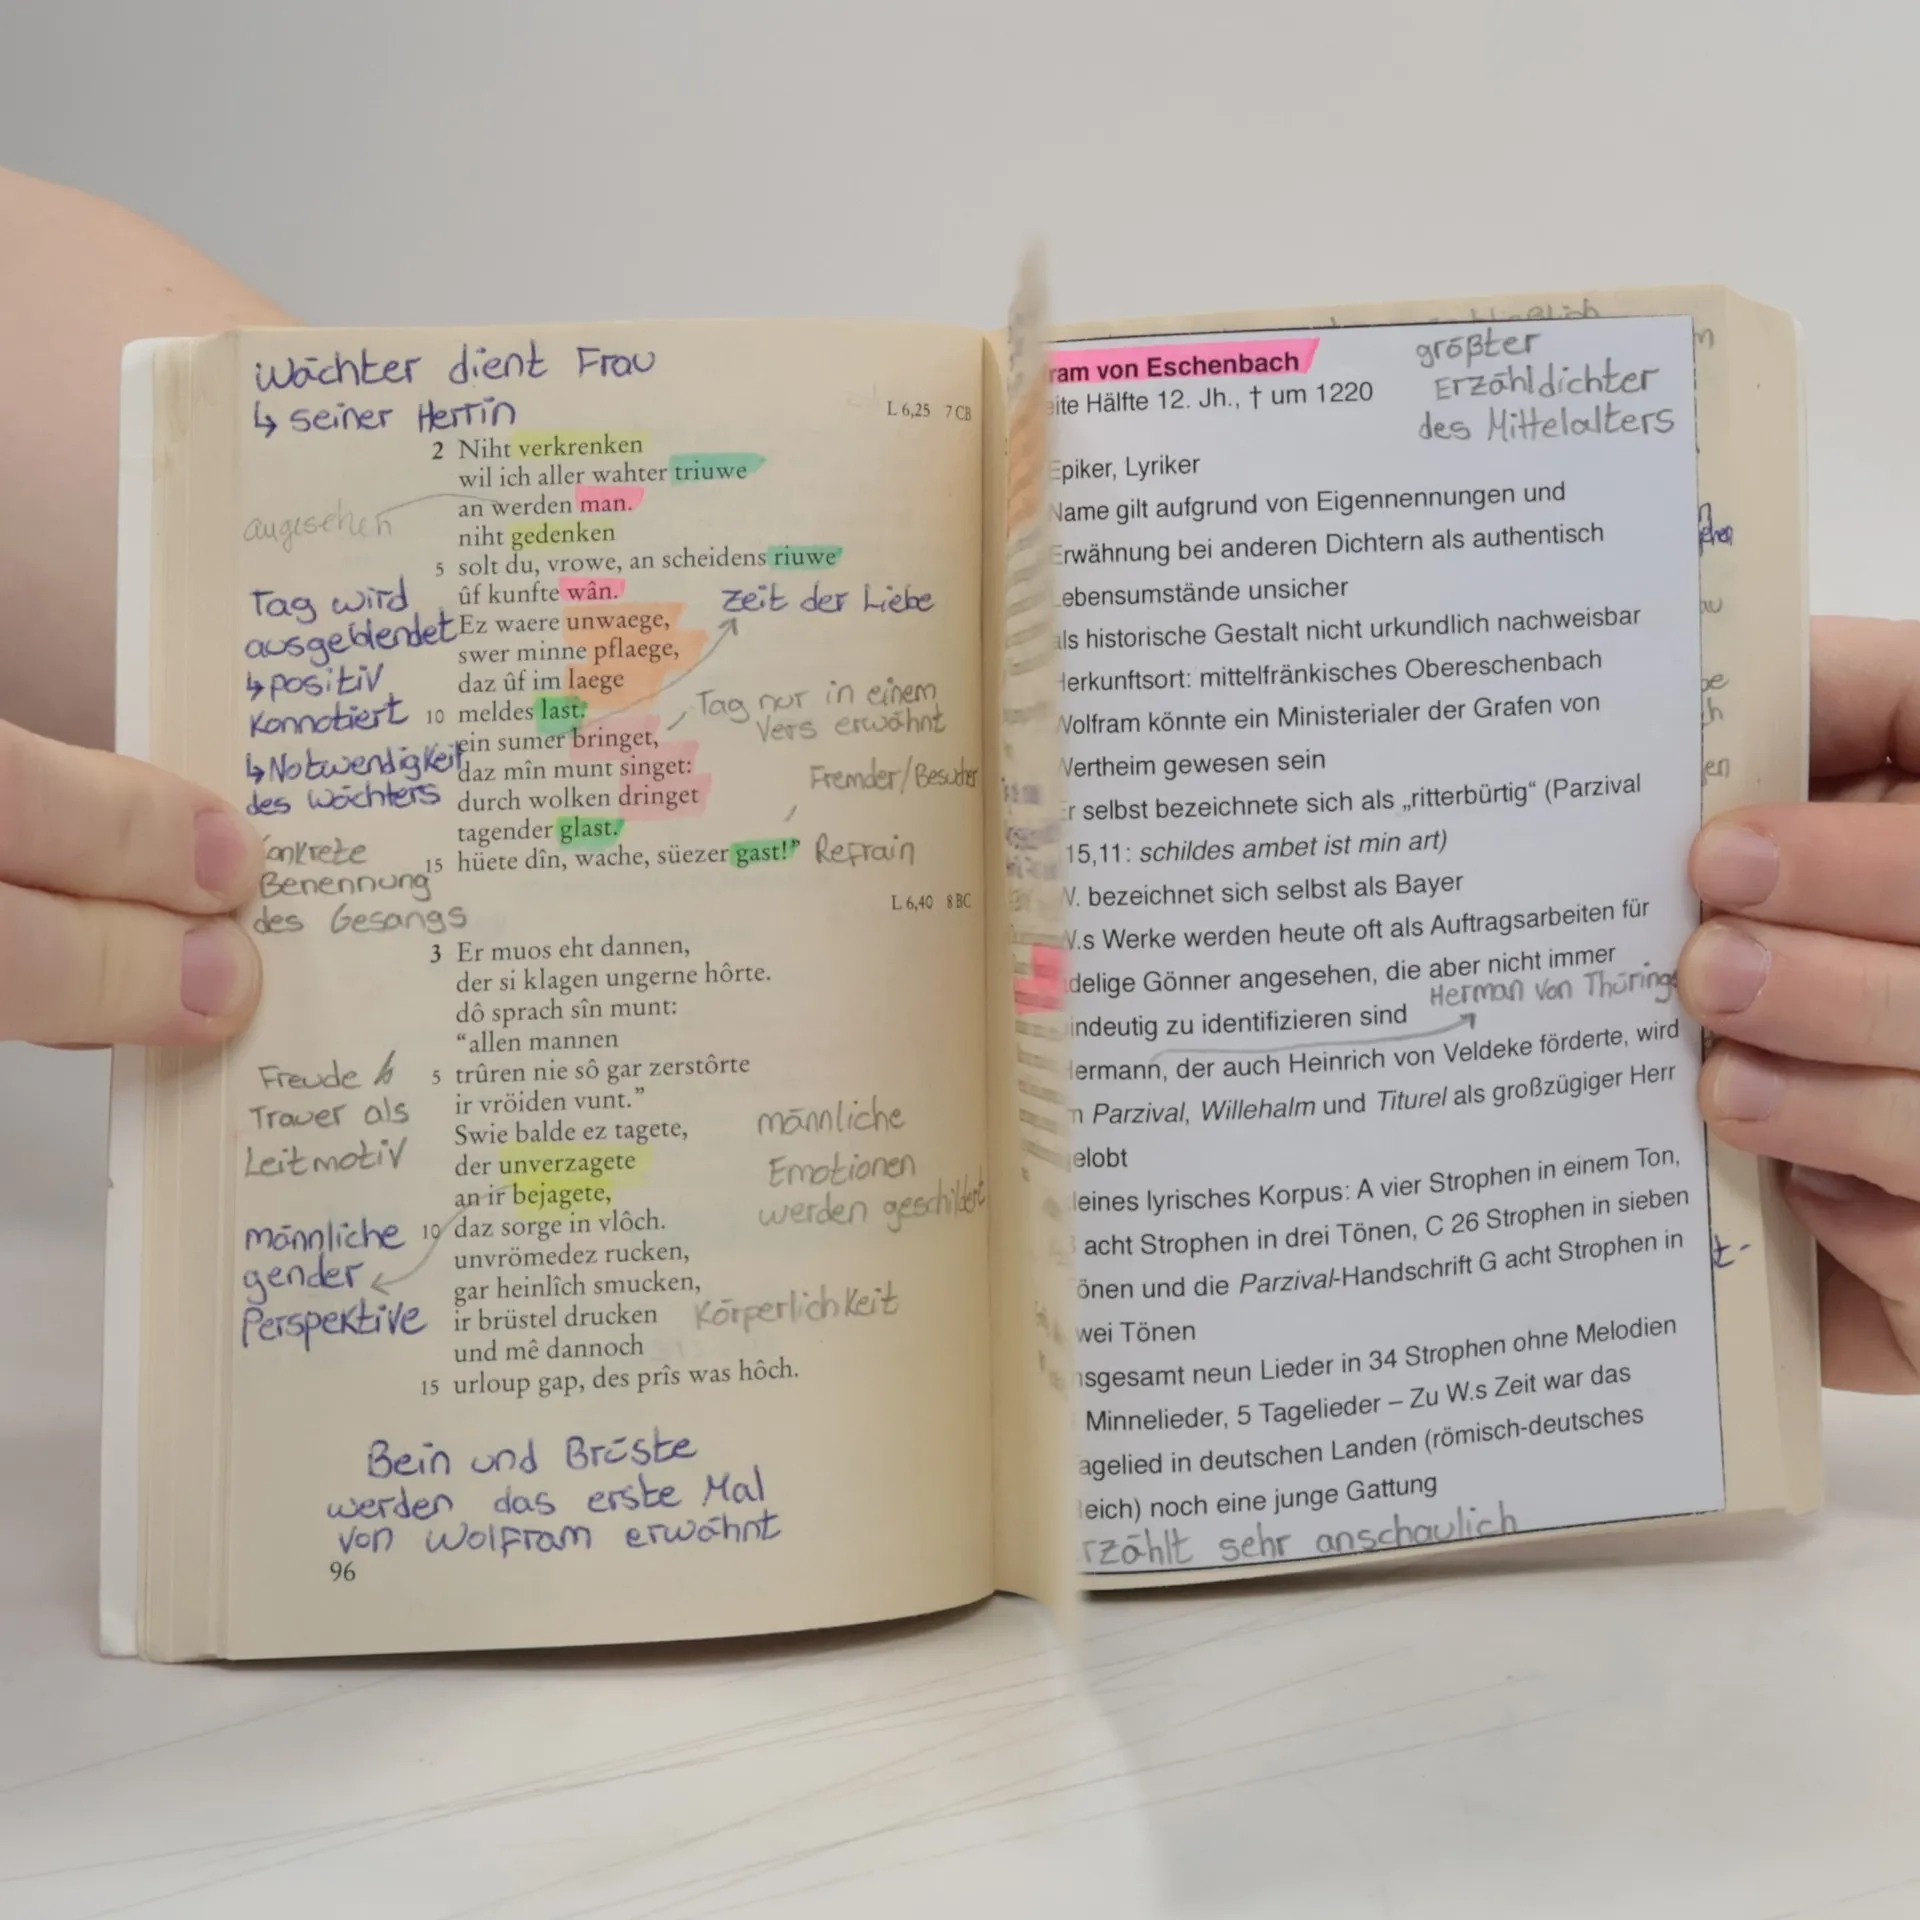 Wächter dient Frau
↳ seiner Herrin
L 6,25 7 CB
2 Niht verkrenken
wil ich aller wahter triuwe
an werden man.
angesehen
niht gedenken
5 solt du, vrowe, an scheidens riuwe
ûf kunfte wân.
Zeit der Liebe
Tag wird
ausgeblendet
↳ positiv
Konnotiert
↳ Notwendigkeit
des Wächters
Ez waere unwaege,
swer minne pflaege,
daz ûf im laege
10 meldes last.
Tag nur in einem
Vers erwähnt
ein sumer bringet,
daz mîn munt singet:
Fremder/Besucher
durch wolken dringet
tagender glast.
15 hüete dîn, wache, süezer gast!”
Refrain
Konkrete
Benennung
des Gesangs
L 6,40 8 BC
3 Er muos eht dannen,
der si klagen ungerne hôrte.
dô sprach sîn munt:
“allen mannen
5 trûren nie sô gar zerstôrte
ir vröiden vunt.”
Freude
Trauer als
Leitmotiv
Swie balde ez tagete,
der unverzagete
an ir bejagete,
männliche
Emotionen
werden geschildert
10 daz sorge in vlôch.
unvrömedez rucken,
gar heinlîch smucken,
ir brüstel drucken
Körperlichkeit
und mê dannoch
15 urloup gap, des prîs was hôch.
männliche
gender
Perspektive
Bein und Brüste
werden das erste Mal
von Wolfram erwähnt
96
ram von Eschenbach
eite Hälfte 12. Jh., † um 1220
größter
Erzähldichter
des Mittelalters
Epiker, Lyriker
Name gilt aufgrund von Eigennennungen und
Erwähnung bei anderen Dichtern als authentisch
Lebensumstände unsicher
als historische Gestalt nicht urkundlich nachweisbar
Herkunftsort: mittelfränkisches Obereschenbach
Wolfram könnte ein Ministerialer der Grafen von
Wertheim gewesen sein
Er selbst bezeichnete sich als „ritterbürtig“ (Parzival
15,11: schildes ambet ist min art)
W. bezeichnet sich selbst als Bayer
W.s Werke werden heute oft als Auftragsarbeiten für
adelige Gönner angesehen, die aber nicht immer
indeutig zu identifizieren sind
Herman von Thüring
Hermann, der auch Heinrich von Veldeke förderte, wird
n Parzival, Willehalm und Titurel als großzügiger Herr
elobt
leines lyrisches Korpus: A vier Strophen in einem Ton,
B acht Strophen in drei Tönen, C 26 Strophen in sieben
önen und die Parzival-Handschrift G acht Strophen in
wei Tönen
nsgesamt neun Lieder in 34 Strophen ohne Melodien
Minnelieder, 5 Tagelieder – Zu W.s Zeit war das
agelied in deutschen Landen (römisch-deutsches
Reich) noch eine junge Gattung
rzählt sehr anschaulich